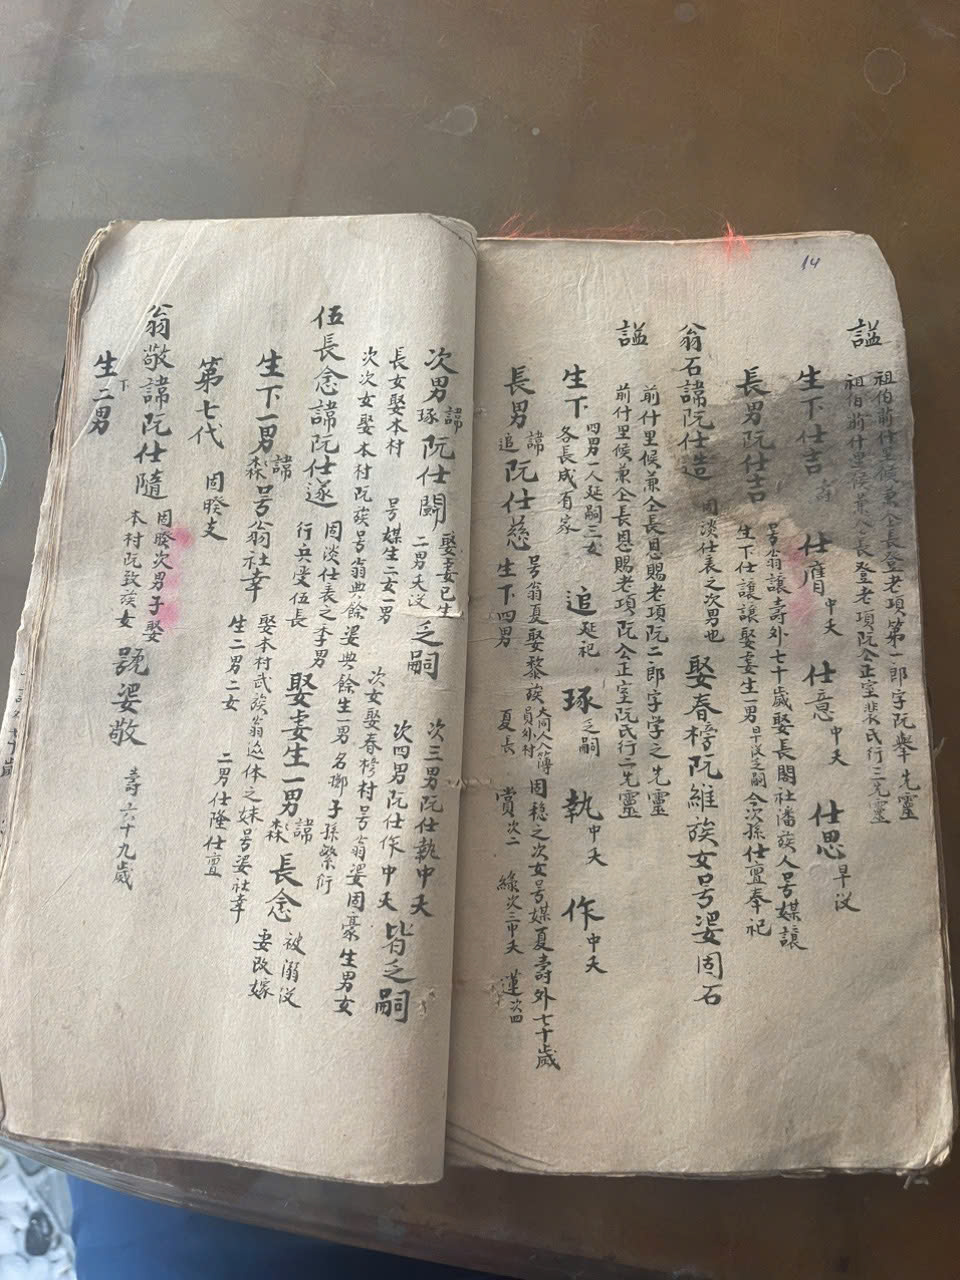 14
謚
祖伯前什里候兼仝長登老項第一郎字阮舉先靈
祖伯前什里候兼仝長登老項阮公正室裴氏行三先靈
生下仕吉壽 仕膺中夭 仕意中夭 仕思早没
長男阮仕吉
号翁讓壽外七十歲娶長閣社潘族人号媒讓
生下仕讓讓娶妻生一男早没乏嗣令次孫仕亶奉祀
翁石諱阮仕造 固淡仕表之次男也 娶春榜阮維族女号婆固石
謚
前什里候兼仝長恩賜老項阮二郎字学之先靈
前什里候兼仝長恩賜老項阮公正室阮氏行二先靈
生下
四男一人延嗣三女
各長成有家
追延祀 琢乏嗣 執中夭 作中夭
長男諱追阮仕慈
号翁夏娶黎族員外村固穏之次女号媒夏壽外七十歲
生下四男 夏長 賞次二 綠次三中夭 蓮次四
次男諱琢阮仕闘 娶妻已生二男夭没乏嗣 次三男阮仕執中夭
次四男阮仕作中夭 皆乏嗣
長女娶本村 号媒生二女一男 次女娶春椮村号翁婆固豪生男女
次次女娶本村阮族号翁典餘婆典餘生一男名瑯子孫繁衍
伍長念諱阮仕遂
固淡仕表之季男
行兵受伍長
娶妻生一男諱森長念
被溺没
妻改嫁
生下一男諱森号翁社幸
娶本村武族翁迩体之妹号婆社幸
生二男二女 二男仕隆仕亶
第七代 固睽支
翁敬諱阮仕隨
固睽次男子娶
本村阮致族女
號婆敬 壽六十九歲
生下二男